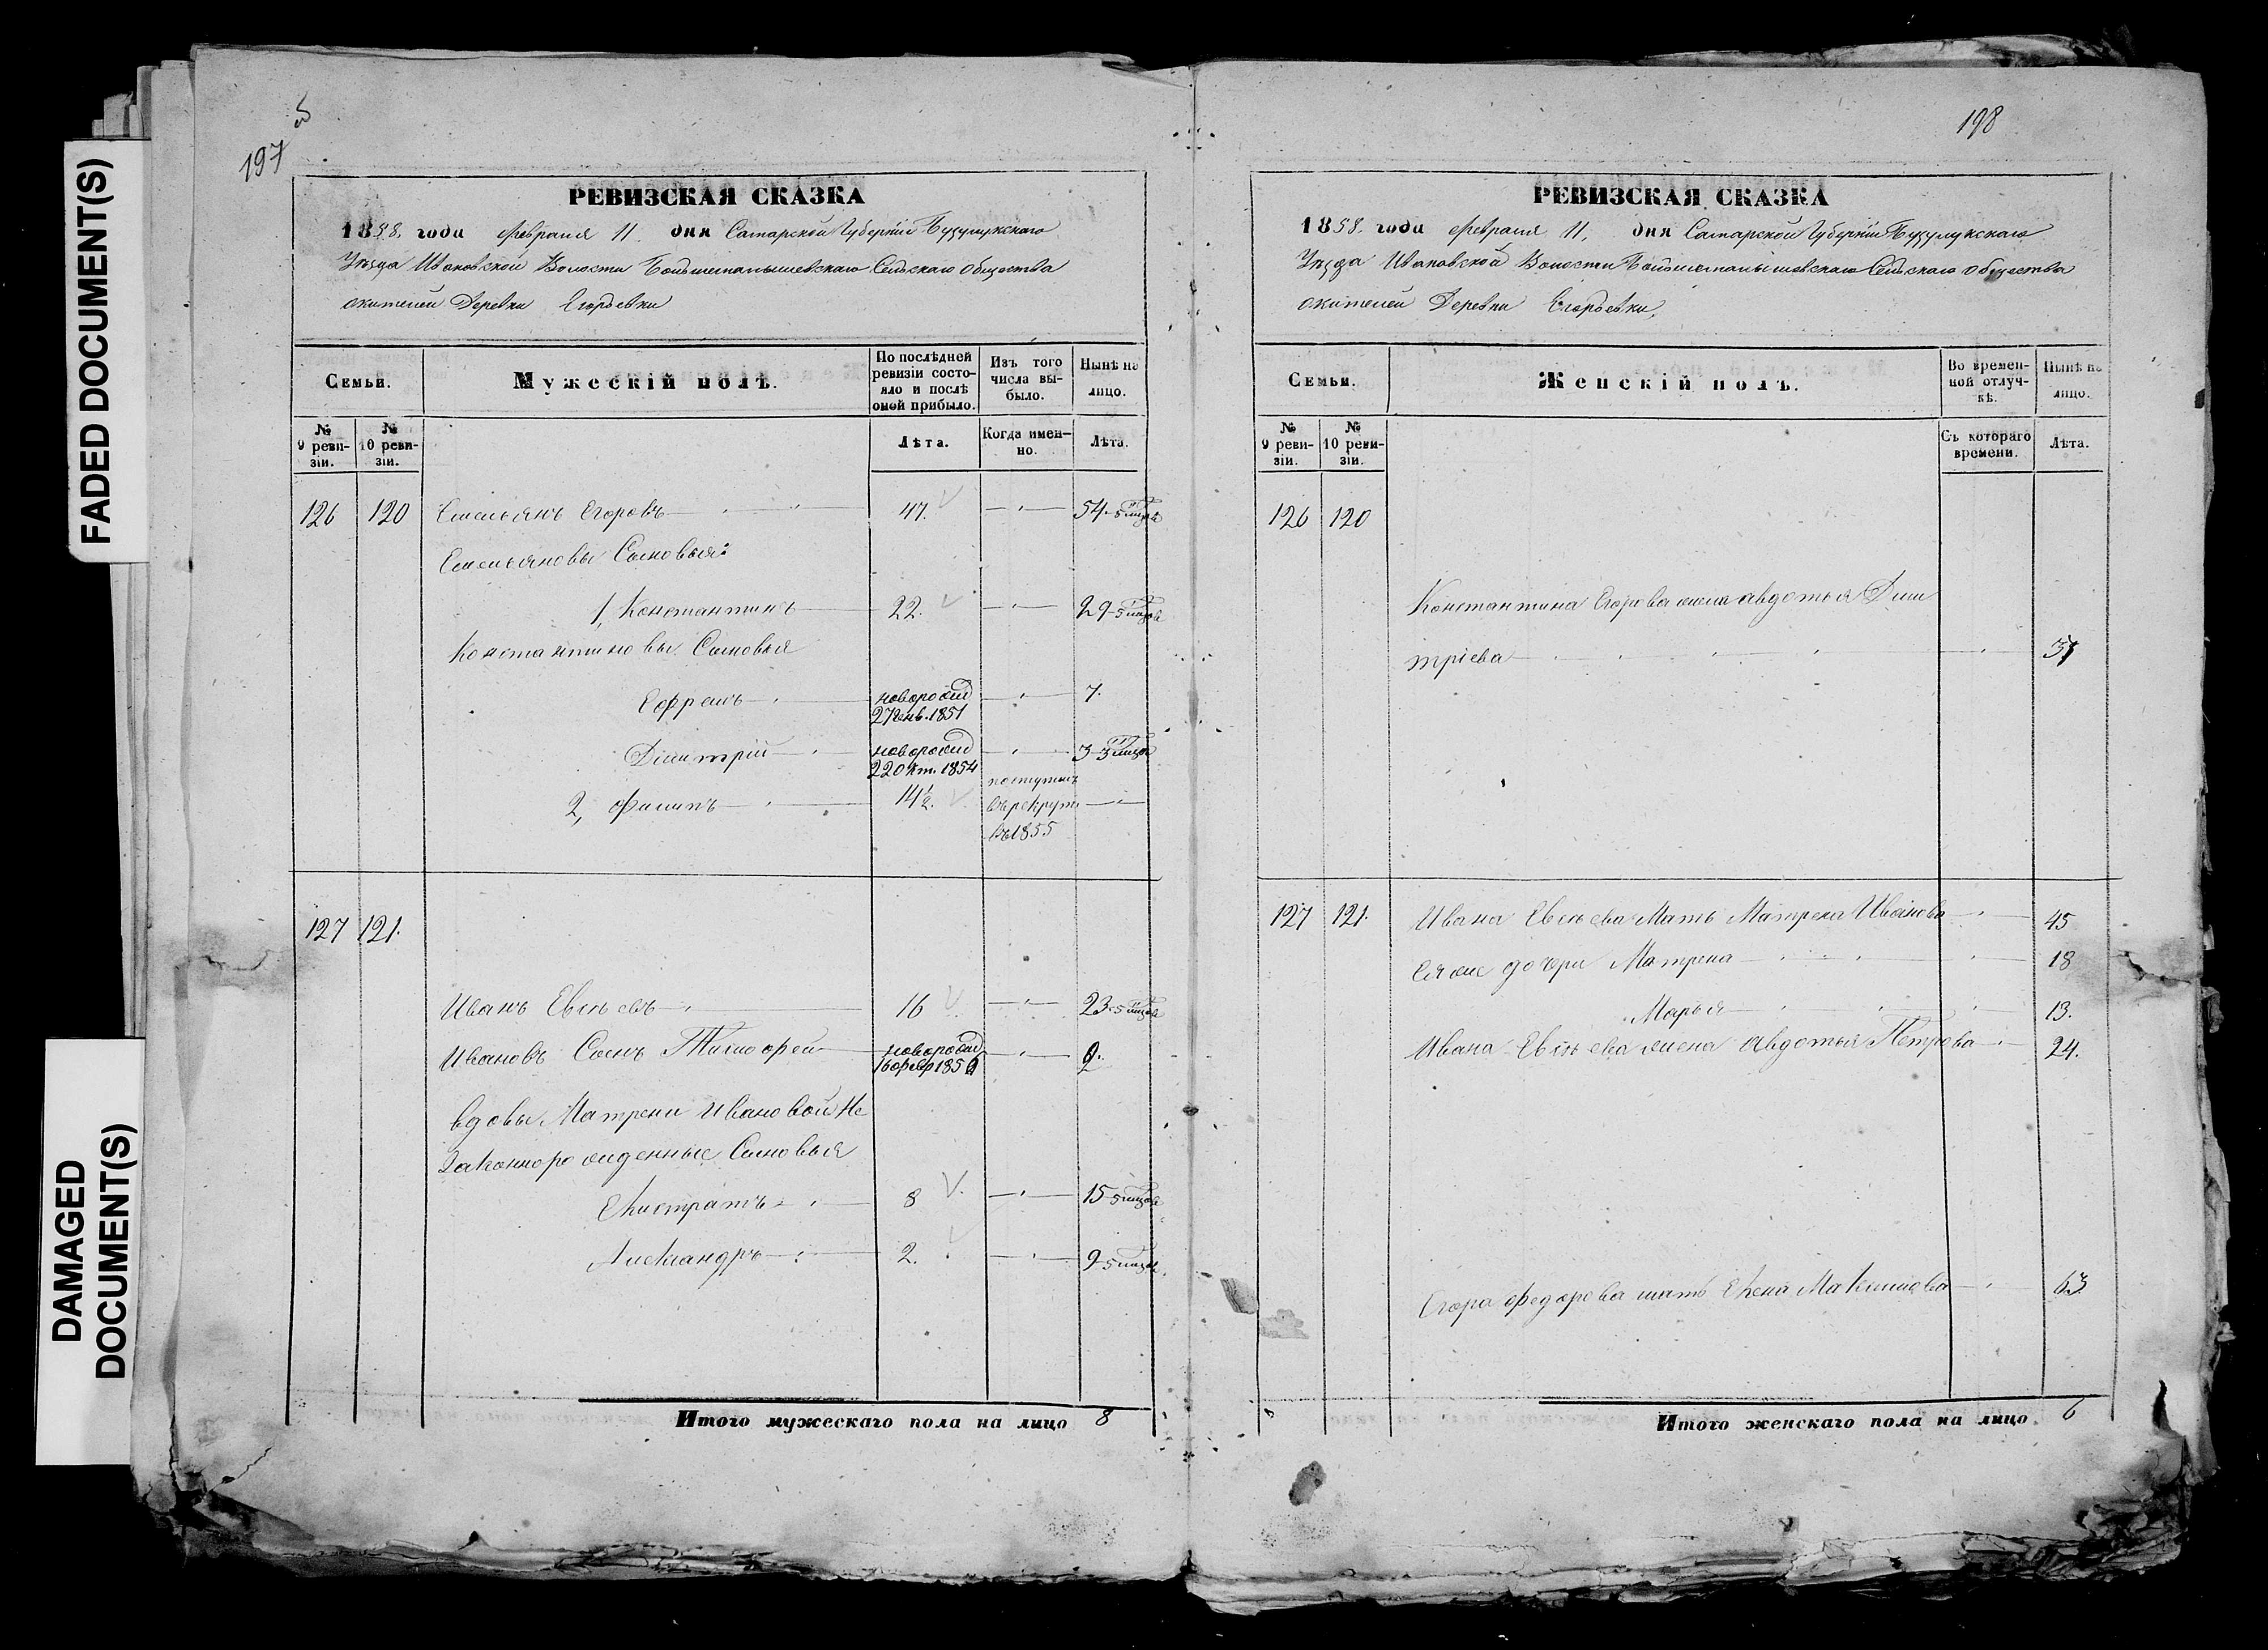 FADED DOCUMENT(S)
DAMAGED
DOCUMENT(S)
197
РЕВИЗСКАЯ СКАЗКА
1858. года февраля 11. дня Самарской Губернiи Бузулукскаго
Уѣзда Ивановской Волости Сельскаго Общества
жителей Деревни Егорьевки
Семьи.
Мужескiй полъ.
По послѣдней
ревизiи состо-
яло и послѣ
оной прибыло.
Изъ того
числа вы-
было.
Нынѣ на
лицо.
№
9 реви-
зiи.
№
10 реви-
зiи.
Лѣта.
Когда имен-
но.
Лѣта.
126 120 Емельянъ Егоровъ 47. 54-5
Емельяновы Сыновья:
1, Константинъ 22. 29-5
Константиновы Сыновья
Ефремъ новорожд 7.
27 Генв. 1851
Дімитрій новорожд 3-3
22 Окт. 1854
поступилъ
2, Филипъ 14½. въ рекрут
въ 1855
127 121.
Иванъ 16 23-5
Ивановъ Сынъ Тимофей новорожд
16 февр 185
вдовы Матрени Ивановой Не
Законнорожденные Сыновья
Елистратъ 8 15-5
Александръ 2. 9-5
Итого мужескаго пола на лицо 8
198
РЕВИЗСКАЯ СКАЗКА
1858. года февраля 11. дня Самарской Губернiи Бузулукскаго
Уѣзда Ивановской Волости Сельскаго Общества
жителей Деревни Егорьевки,
Семьи.
Женскiй полъ.
Во времен-
ной отлуч-
кѣ.
Нынѣ на
лицо.
№
9 реви-
зiи.
№
10 реви-
зiи.
Съ котораго
времени.
Лѣта.
126 120
Константина Егорова жена авдотья Дми
трiева 31
127 121. Ивана Мать Матрена Иванова 45
Ея же дочери Матрена 18
Марья 13.
Ивана жена Авдотья Петрова 24.
Егора Федорова мать Елена Максимова 63
Итого женскаго пола на лицо. 6